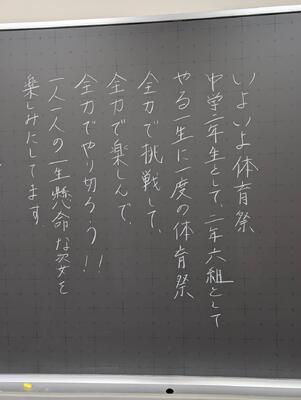 いよいよ体育祭
中学二年生として、二年六組として
やる一生に一度の体育祭
全力で挑戦して、
全力で楽しんで、
全力でやり切ろう!!
一人一人の一生懸命な姿を
楽しみにしてます。